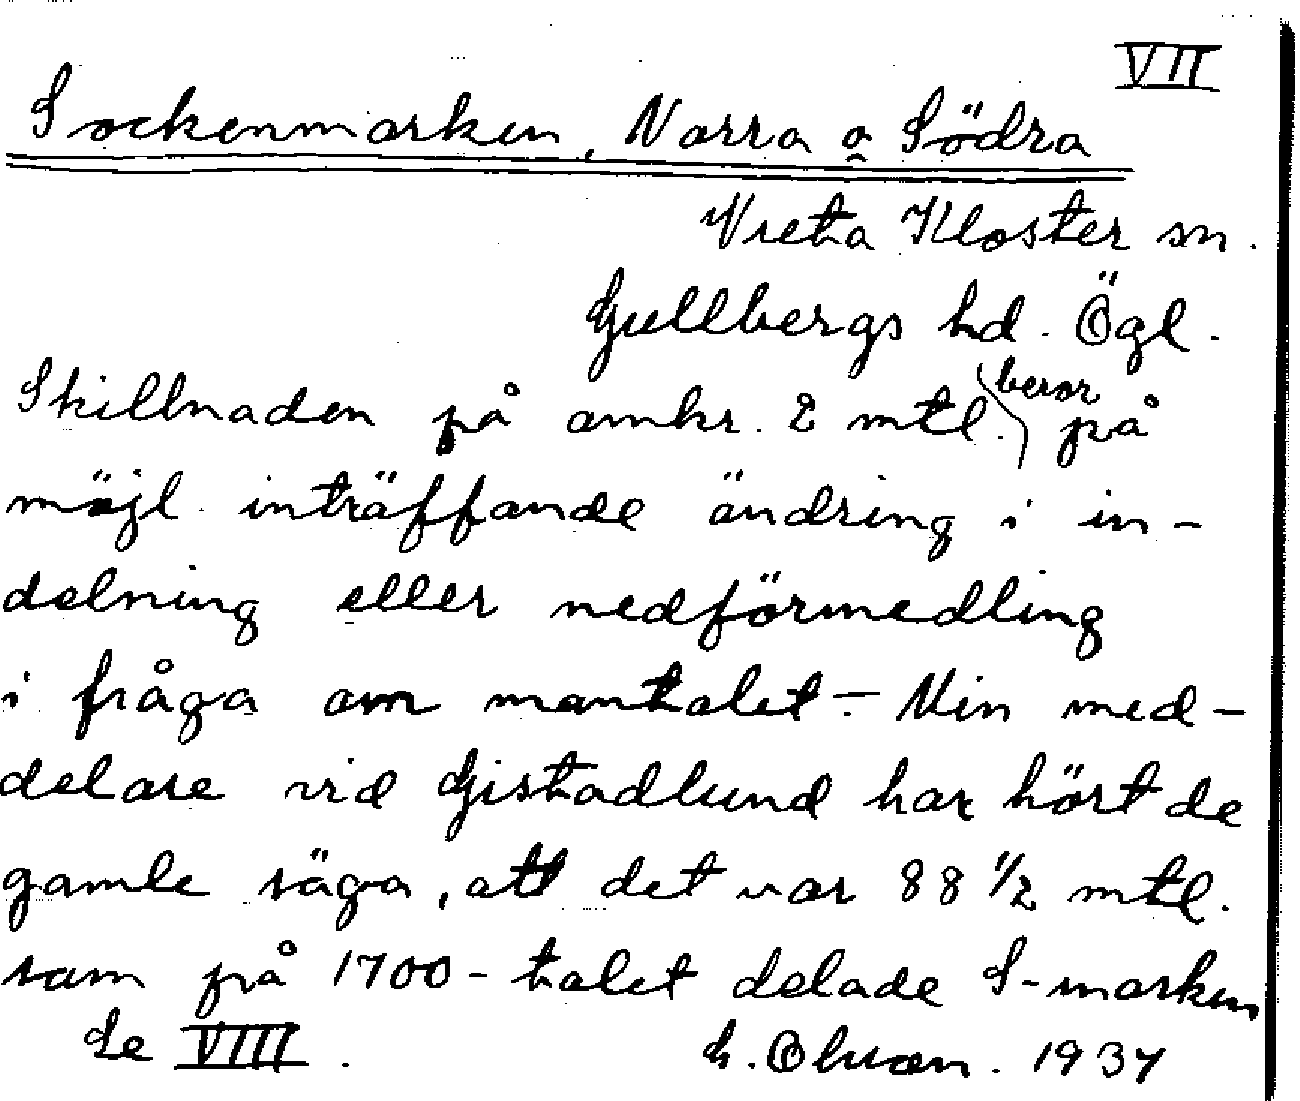 VII
Sockenmarken, Norra o Södra
Vreta Kloster sn.
Gullbergs hd. Ögl.
Skillnaden på omkr. 2 mtl. beror på
möjl. inträffande ändring i in-
delning eller nedförmedling
i fråga om mantalet. - Min med-
delare vid Gistadlund har hört de
gamle säga, att det var 88 1/2 mtl.
som på 1700-talet delade S-marken
Se VIII.
1937